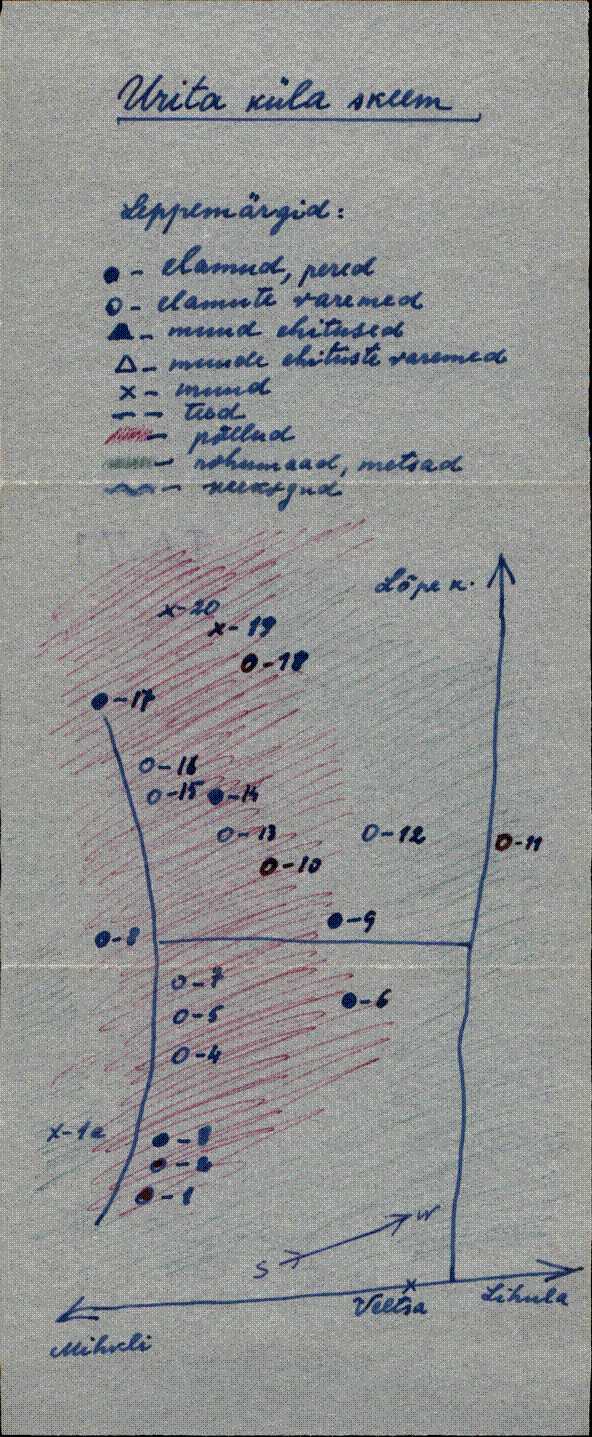 Urita küla skeem
Leppemärgid:
- elamud, pered
- elamute varemed
- muud ehitused
- muude ehituste varemed
x - muud
- teed
- põllud
- rohumaad, metsad
- veekogud
Lõpe k.
x-20
x-19
o-18
-17
o-16
o-15
-14
o-13
o-12
o-11
o-10
-9
-8
o-7
-6
o-5
o-4
x-1a
-3
-2
-1
S
N
Veltsa
Lihula
Mihkli